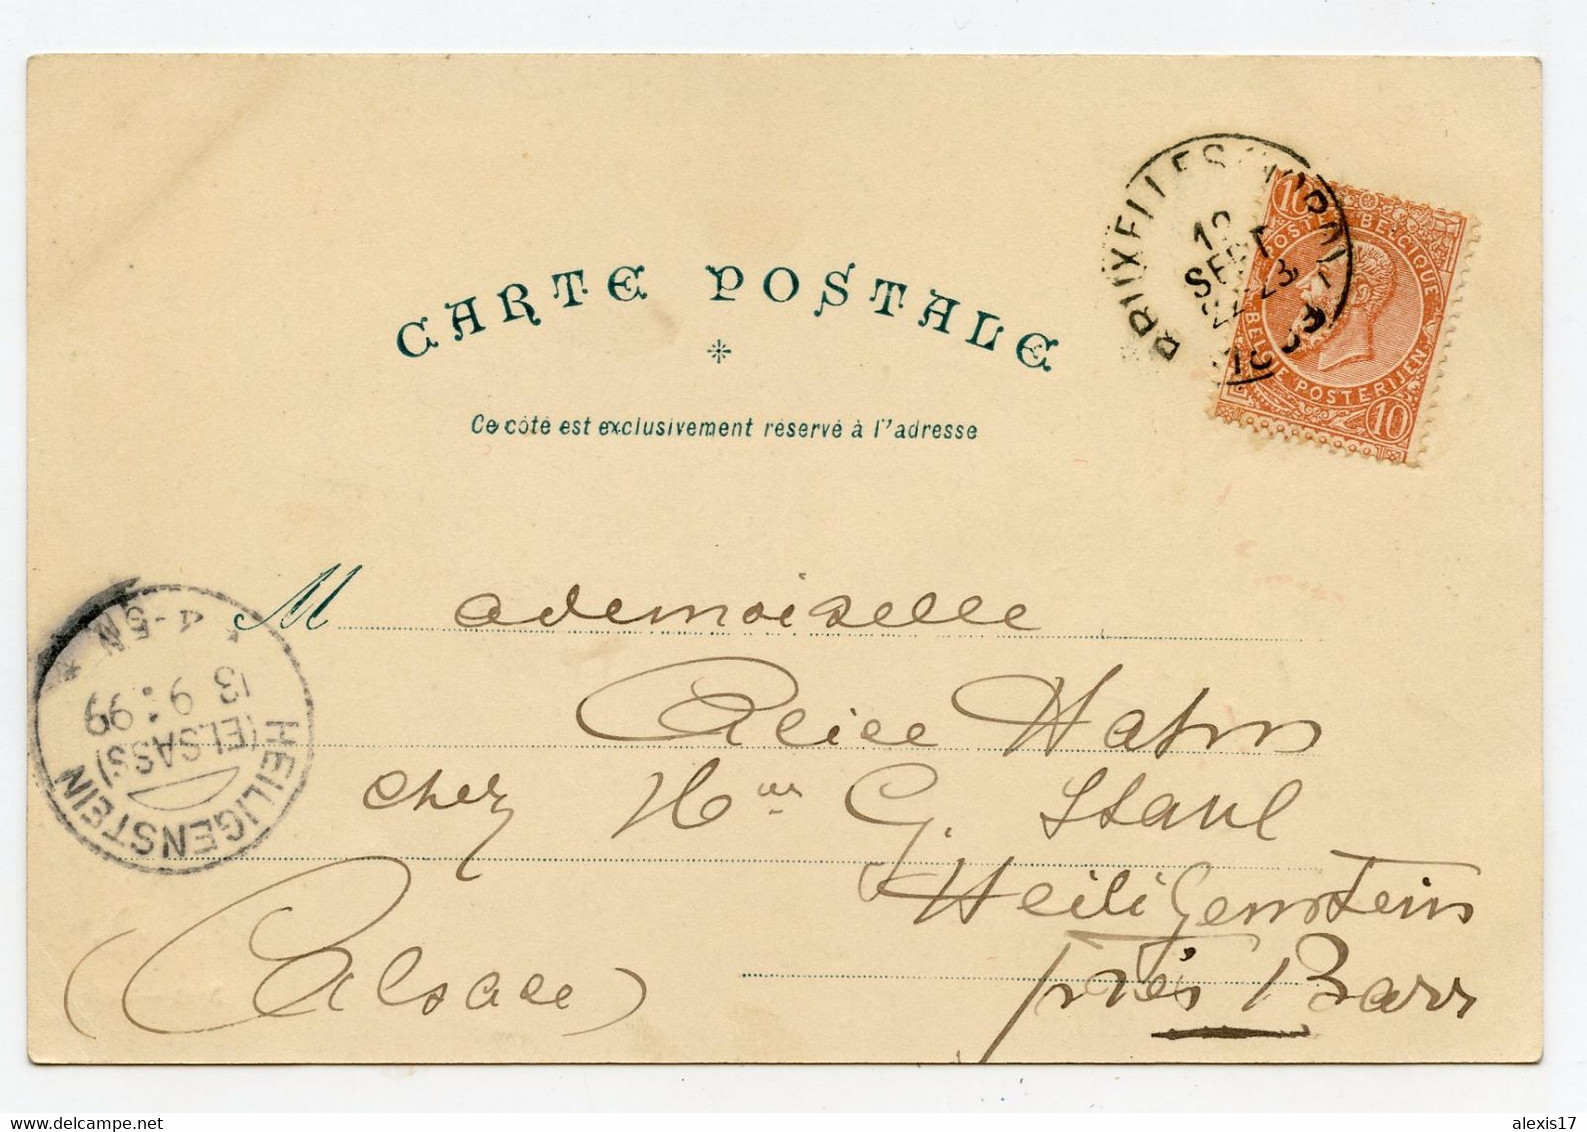 CARTE POSTALE
Ce côté est exclusivement réservé à l'adresse
BRUXELLES
12
SEPT
22-23
10
POSTES BELGIQUE
BELGIE POSTERIJEN
10
Mademoiselle
Alice Hahn
chez Mr G. Staul
Heiligenstein
près Barr
(Alsace)
HEILIGENSTEIN
(ELSASS)
13 9 : 99
* 4-5N *
delcampe.net
alexis17